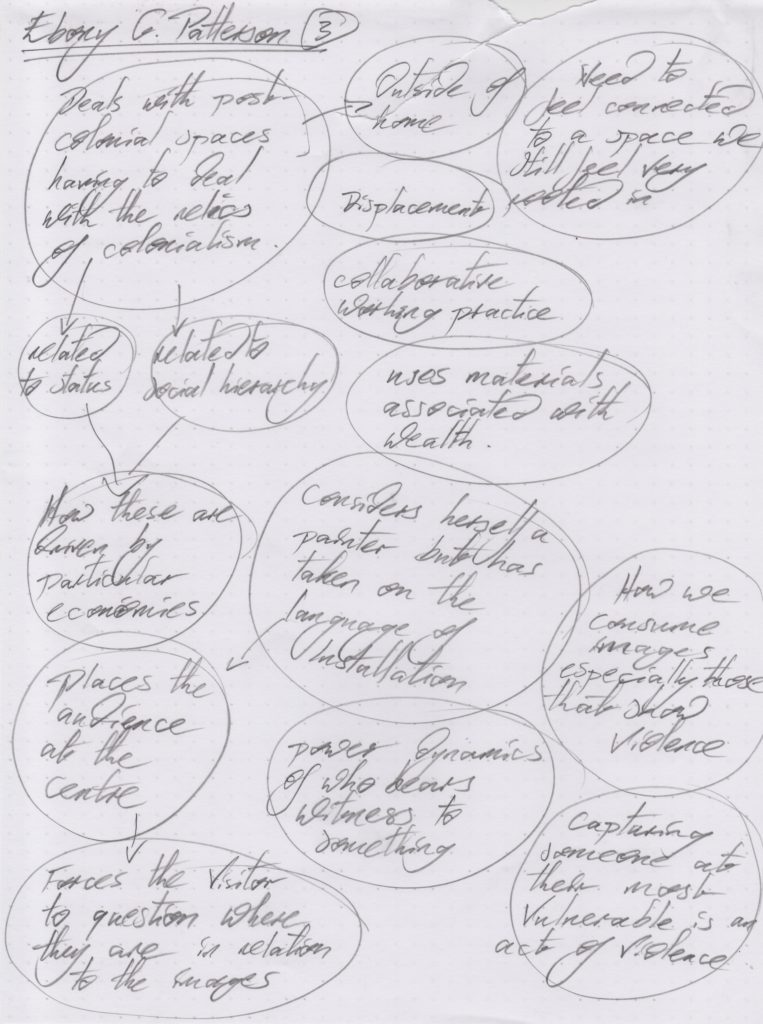 Ebony G. Patterson (3)
Deals with post-
colonial spaces
having to deal
with the relics
of colonialism.
Outside of
home
Need to
feel connected
to a space we
still feel very
rooted in
Displacement
collaborative
working practice
related
to status
related to
social hierarchy
uses materials
associated with
wealth.
How these are
driven by
particular
economies
Considers herself a
painter but has
taken on the
language of
Installation
How we
consume
images
especially those
that show
violence
Places the
audience
at the
centre
power dynamics
of who bears
witness to
something
Capturing
someone at
their most
vulnerable is an
act of violence
Forces the visitor
to question where
they are in relation
to the images